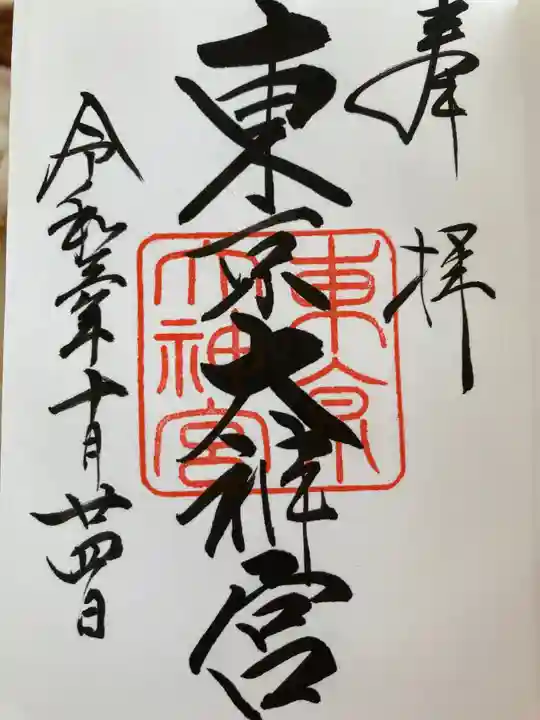 奉拝
東京大神宮
東京
大神宮
令和三年十月廿四日